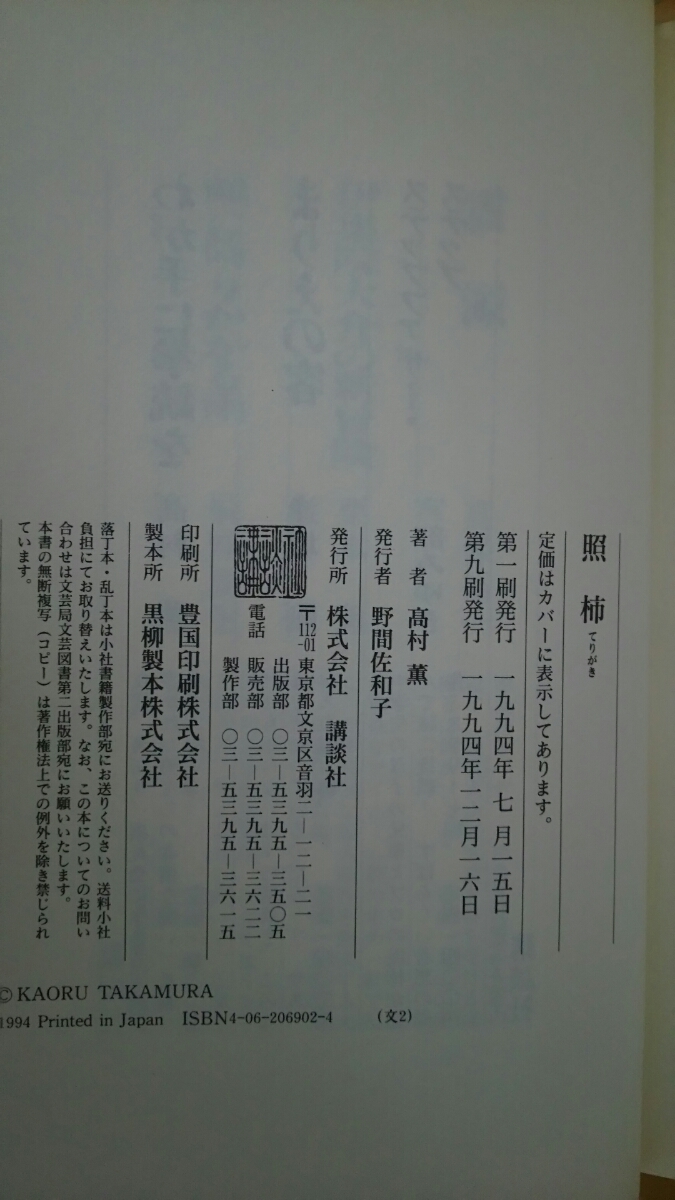 照柿
てりがき
定価はカバーに表示してあります。
第一刷発行 一九九四年 七 月一五日
第九刷発行 一九九四年一二月一六日
著 者 髙村 薫
発行者 野間佐和子
発行所 株式会社 講談社
〒112-01 東京都文京区音羽二―一二―二一
出版部 〇三―五三九五―三五〇五
電話 販売部 〇三―五三九五―三六二二
製作部 〇三―五三九五―三六一五
印刷所 豊国印刷株式会社
製本所 黒柳製本株式会社
落丁本・乱丁本は小社書籍製作部宛にお送りください。送料小社
負担にてお取り替えいたします。なお、この本についてのお問い
合わせは文芸局文芸図書第二出版部宛にお願いいたします。
本書の無断複写（コピー）は著作権法上での例外を除き禁じられ
ています。
©KAORU TAKAMURA
1994 Printed in Japan ISBN4-06-206902-4 （文2）